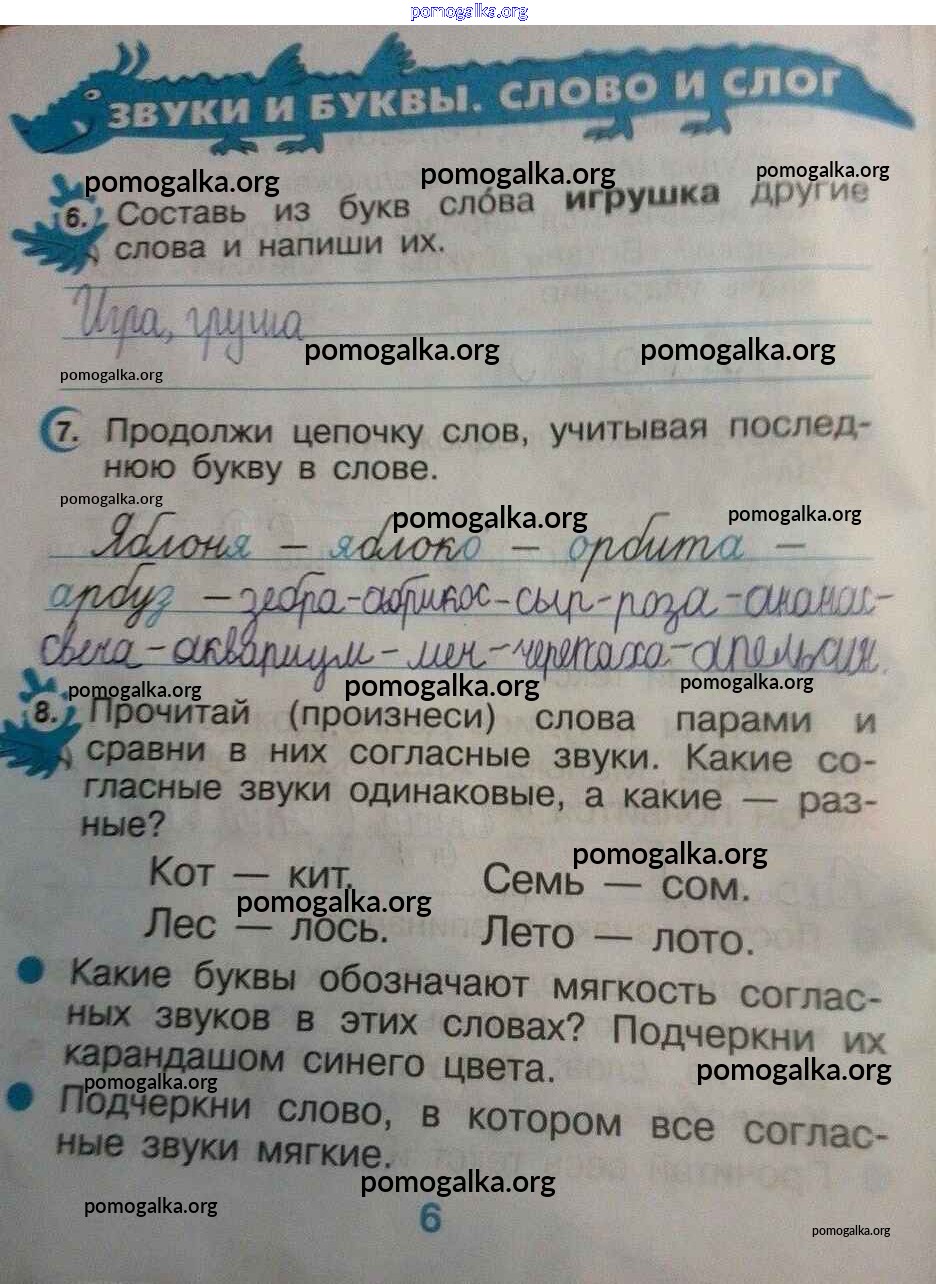 pomogalka.org
ЗВУКИ И БУКВЫ. СЛОВО И СЛОГ
pomogalka.org pomogalka.org pomogalka.org
6. Составь из букв сло́ва игрушка другие
слова и напиши их.
Игра, груша
pomogalka.org pomogalka.org
pomogalka.org
7. Продолжи цепочку слов, учитывая послед-
нюю букву в слове.
pomogalka.org
pomogalka.org pomogalka.org
Яблоня – яблоко – орбита –
арбуз – зебра-абрикос-сыр-роза-ананас-
свеча-аквариум-меч-черепаха-апельсин.
pomogalka.org pomogalka.org pomogalka.org
8. Прочитай (произнеси) слова парами и
сравни в них согласные звуки. Какие со-
гласные звуки одинаковые, а какие — раз-
ные?
pomogalka.org
Кот — кит. Семь — сом.
pomogalka.org
Лес — лось. Лето — лото.
Какие буквы обозначают мягкость соглас-
ных звуков в этих словах? Подчеркни их
карандашом синего цвета.
pomogalka.org pomogalka.org
Подчеркни слово, в котором все соглас-
ные звуки мягкие.
pomogalka.org
pomogalka.org
6
pomogalka.org